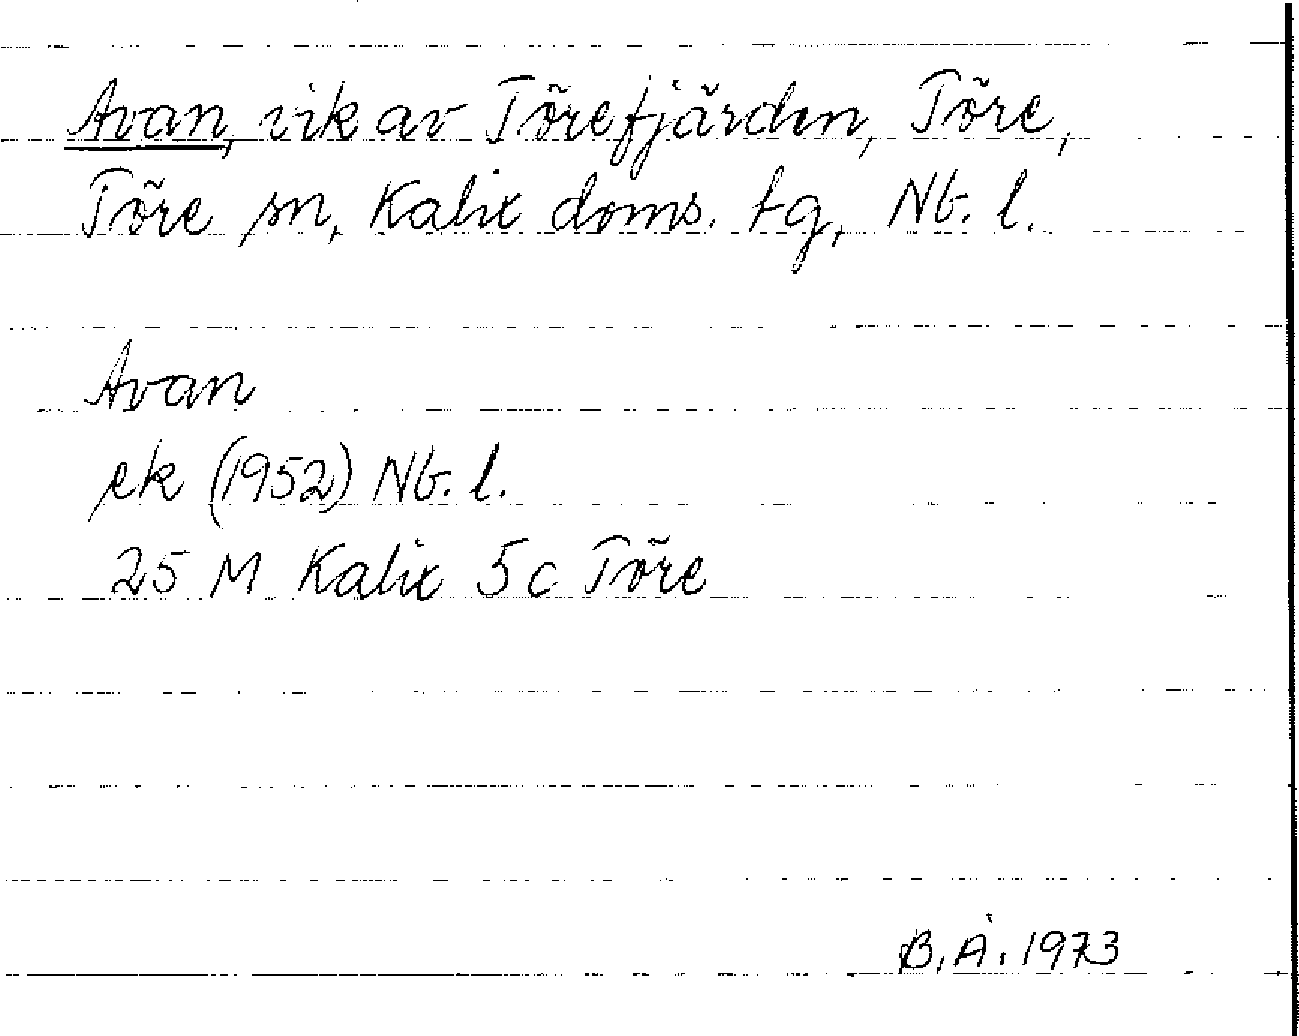 Avan, vik av Törefjärden, Töre,
Töre sn, Kalix doms. tg, Nb. l.
Avan
ek (1952) Nb. l.
25 M Kalix 5c Töre
B. Å. 1973